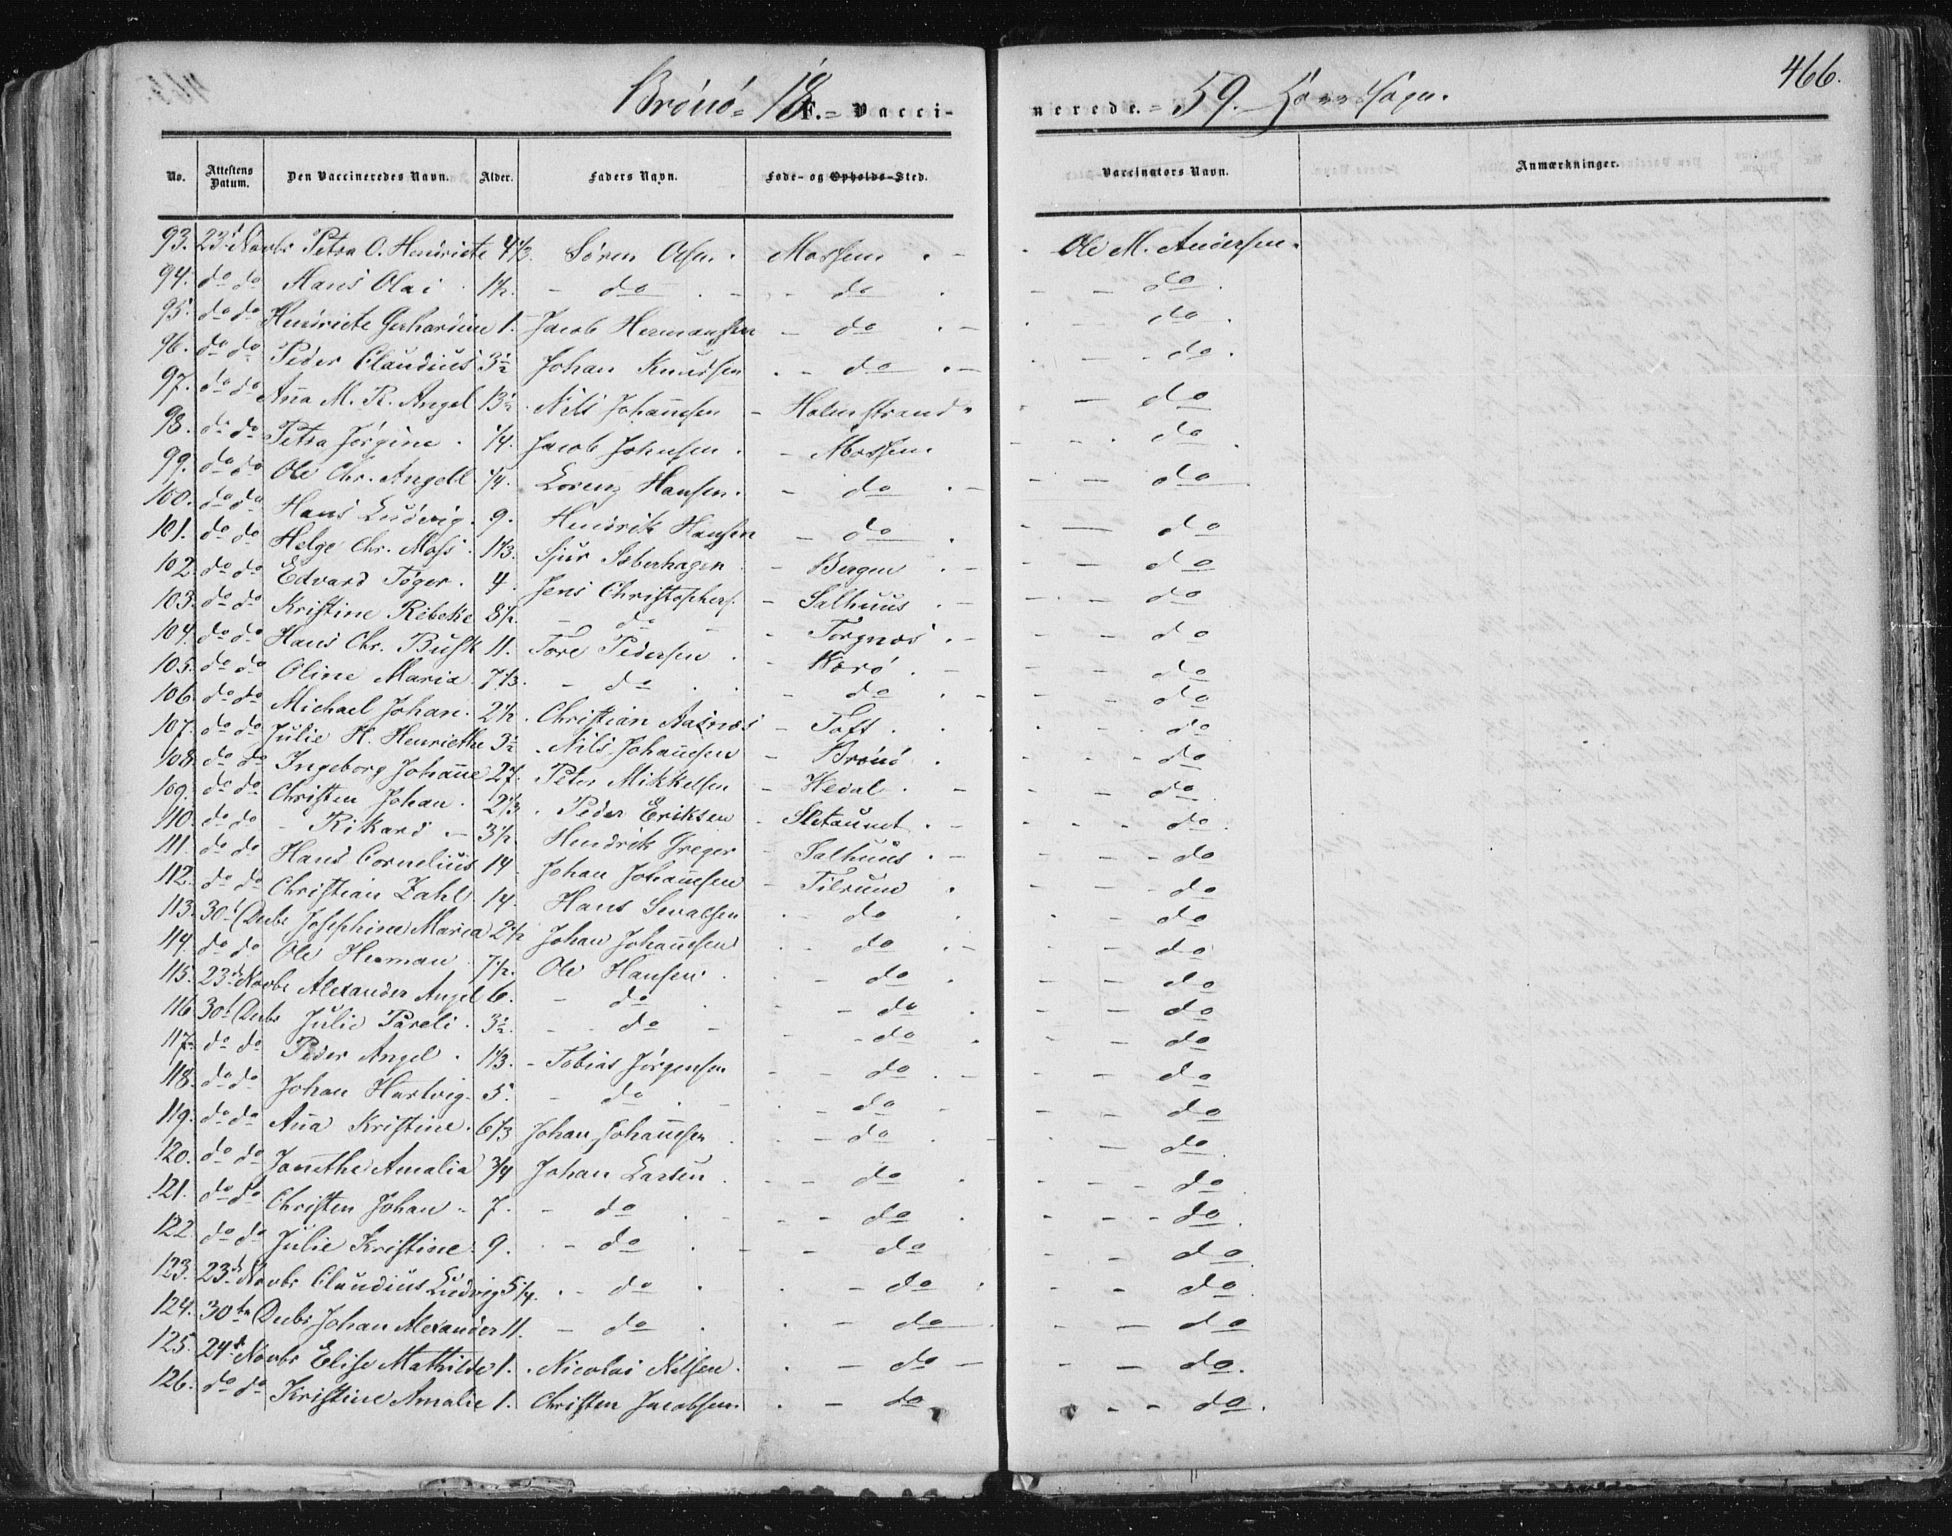 Brönö = 18 59. Sogn. 466.
F. = Vacci- nerede. =
No. Attestens Datum. Den Vaccineredes Navn. Alder. Faders Navn. Føde- og Opholds-Sted. Vaccinators Navn. Anmærkninger.
93. 23d Novbr Petra O. Henriete 4 1/3. Sören Olsen. Mossem - Ole M. Andersen.
94. do do Hans Olai 1 1/2. - do - do - do
95. do do Henriete Gerhardine 1. Jacob Hermansen - do - do
96. do do Peder Claudius 3 1/2 Johan Knudsen - do - do
97. do do Anna M. R. Angel 13 1/2. Nils Johannesen - Holmstrand - do
98. do do Petra Jörgine 1/4. Jacob Johnsen - Mossem - do
99. do do Ole Chr. Angell 1/4. Lorenz Hansen. - do - do
100. do do Hans Ludvig. 9. Hendrik Hansen - do - do
101. do do Helge Chr. Moss 1 1/3. Sjur - Bergen - do
102. do do Edvard Töger. 4. Jens Christophers. - Salhuus - do
103. do do Kristine Rebekke 8 1/2. - do - Torgnes - do
104. do do Hans Chr. Busk 11. Tore Pedersen - - do
105. do do Oline Maria. 7 1/3. - do - do - do
106. do do Michael Johan. 2 1/2. Christian Aasnæs - Toft. - do
107. do do Julie H. Henriethe 3 1/2. Nils Johannesen - Brönö - do
108. do do Ingeborg Johanne 27. Peter Mikkelsen - Heval. - do
109. do do Christen Johan. 2 1/3. Peder Eriksen - - do
110. do do Rikard - 3 1/2. Hendrik Greger - Salhuus - do
111. do do Hans Cornelius 14 Johan Johannesen - Tilrum - do
112. do do Christian Zahl 14. Hans - do - do
113. 30t Decbr Josephine Maria 2 1/2 Johan Johannesen - do - do
114. do do Ole Herman 7 1/2. Ole Hansen. - do - do
115. 23d Novbr Alexander Angel 6. - do - do - do
116. 30t Decbr Julie Pareli. 3 1/2. - do - do - do
117. do do Peder Angel. 1 1/3. - Tobias Jörgensen - do - do
118. do do Johan Hartvig. 5. - do - do - do
119. do do Anna Kristine. 6 1/3 Johan Johannesen - do - do
120. do do Janethe Amalia 3/4 Johan Larsen - do - do
121. do do Christen Johan - 7. - do - do - do
122. do do Julie Kristine. 9. - do - do - do
123. 23d Novbr Claudius Ludvig 5 1/4. - do - do - do
124. 30te Decbr Johan Alexander 11. - do - do - do
125. 24d Novbr Elise Mathilde 1. Nicolai Nilsen. - do - do.
126. do do Kristine Amalie 1. Christen Jacobsen. - do - do.